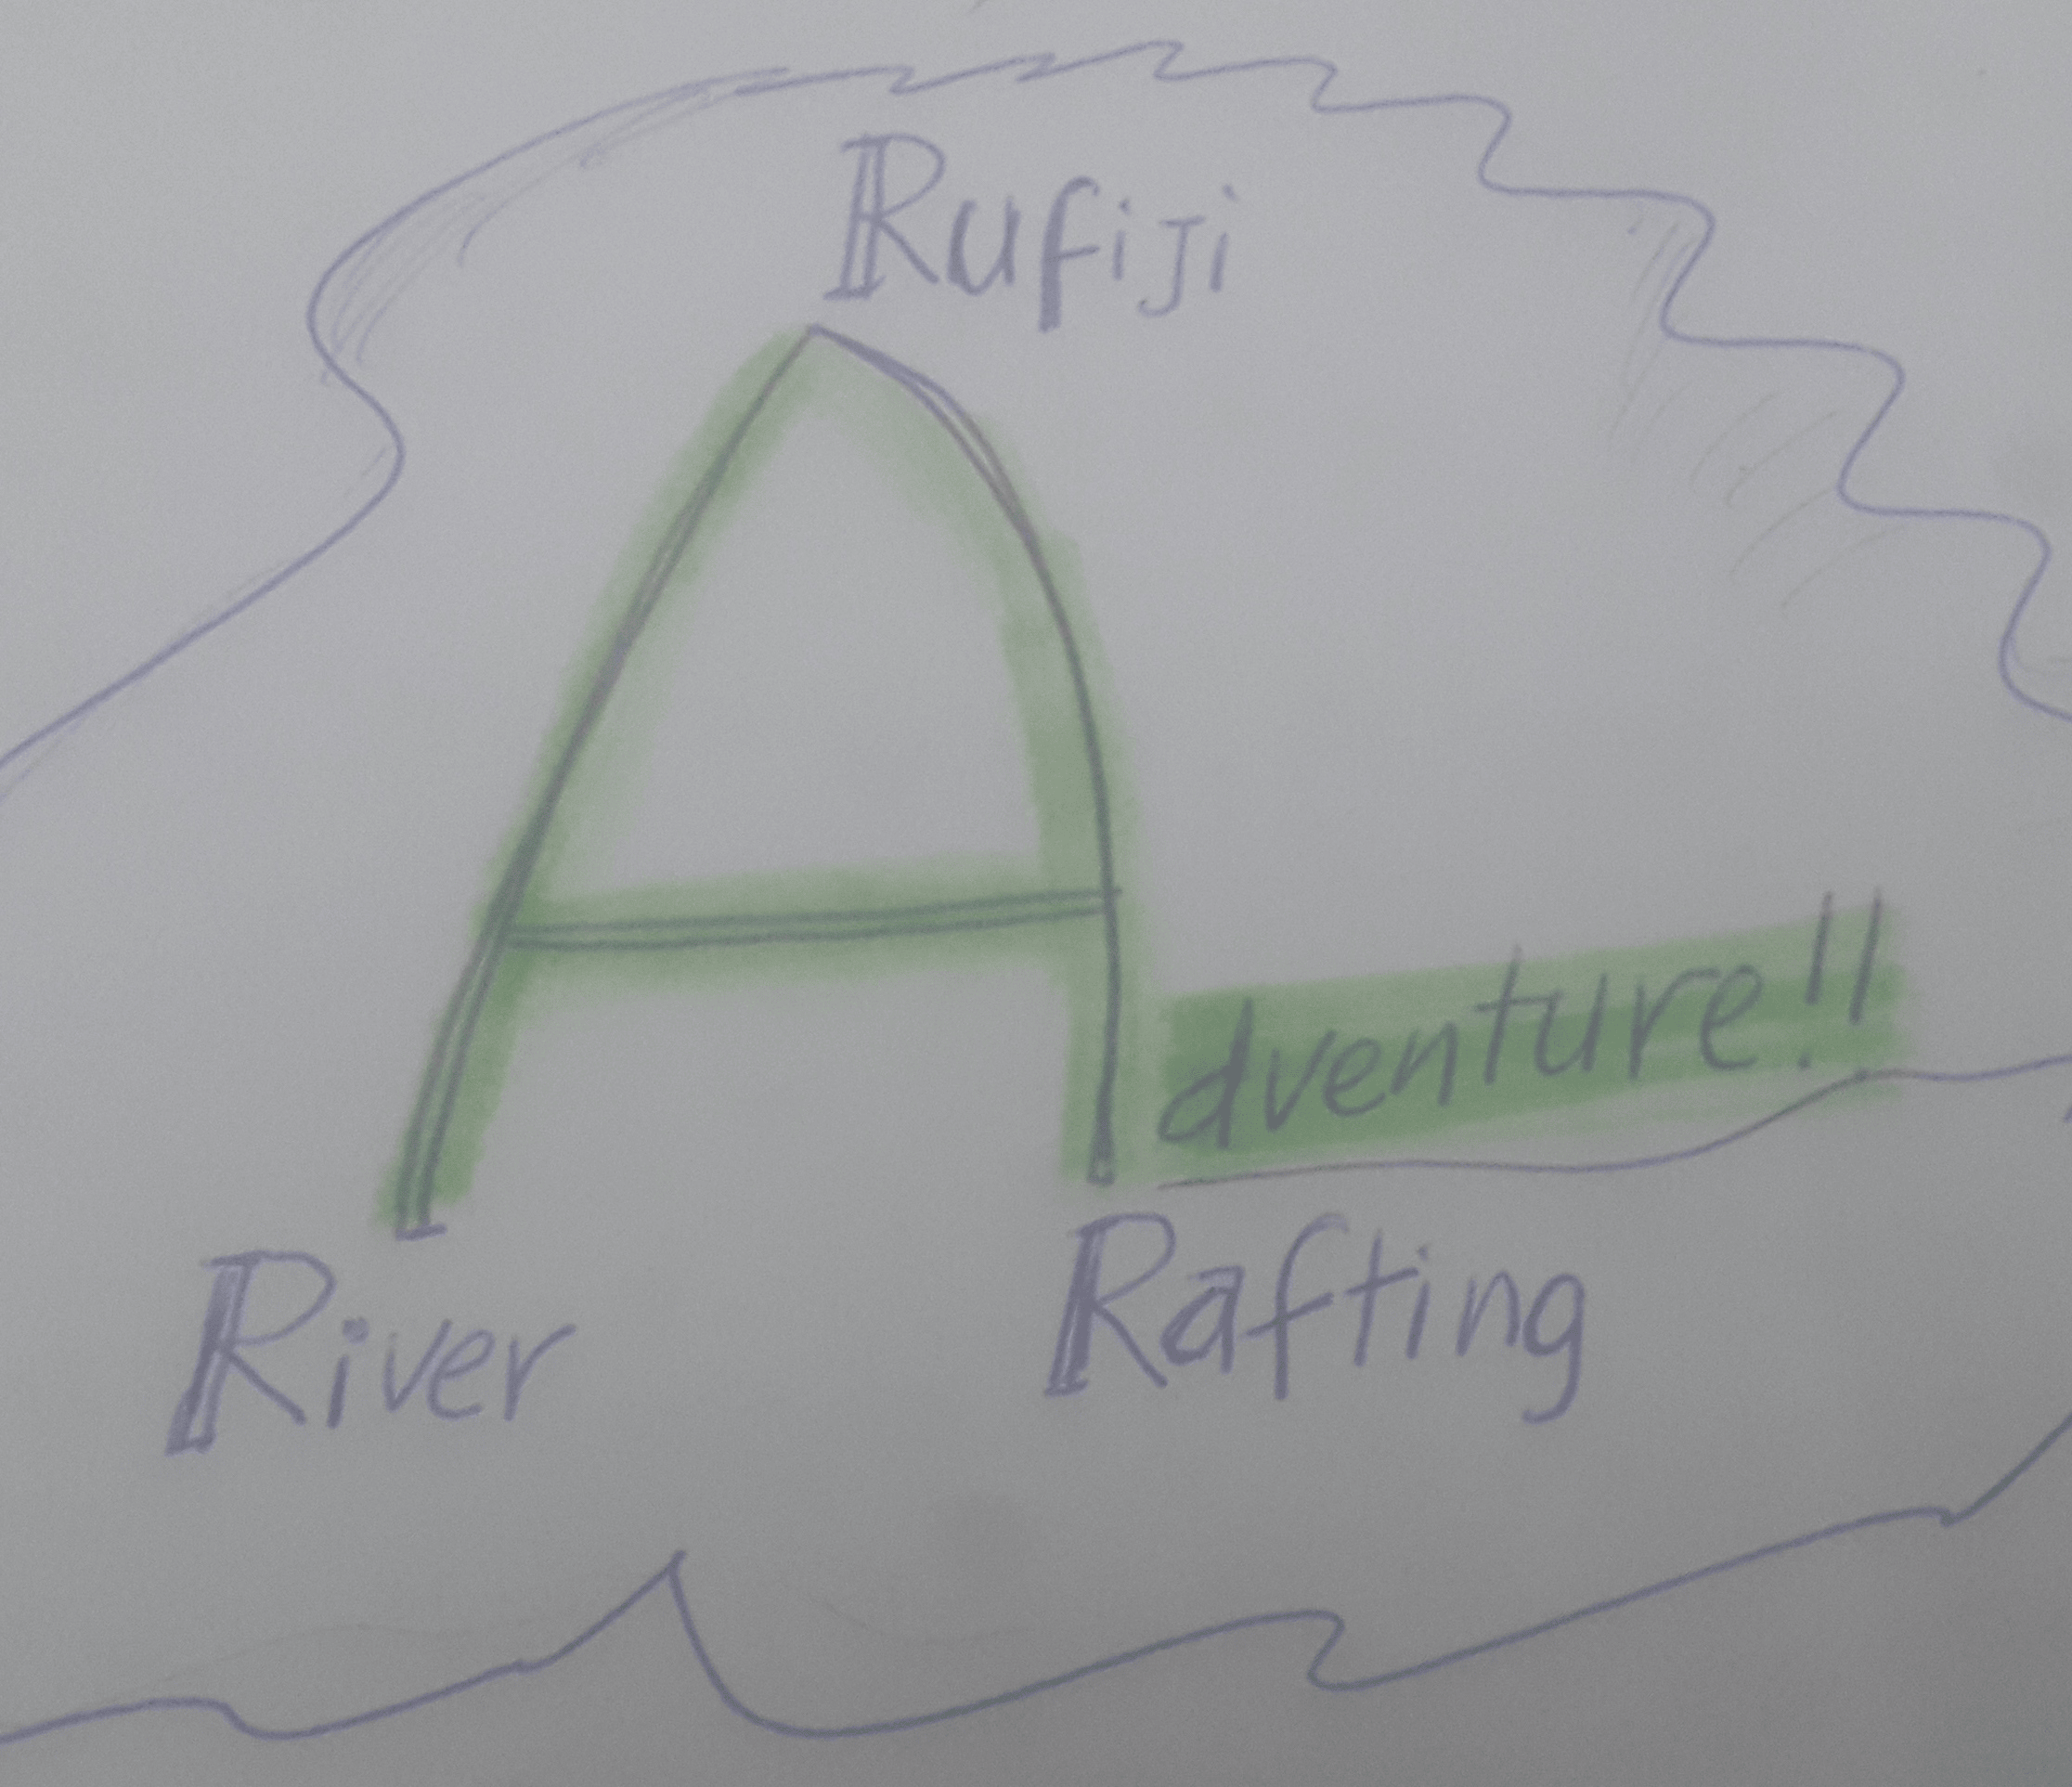 Rufiji
Adventure!!
River
Rafting